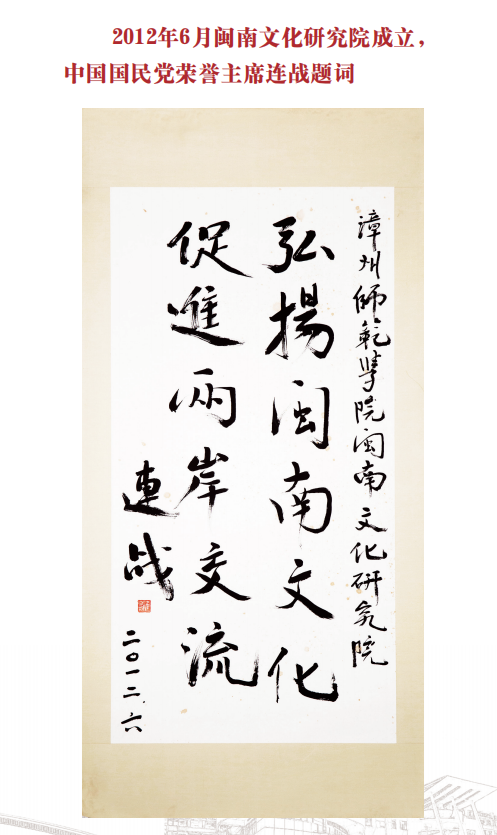 2012年6月闽南文化研究院成立，
中国国民党荣誉主席连战题词
漳州師範學院闽南文化研究院
弘揚闽南文化
促進兩岸交流
連战
二〇一二.六